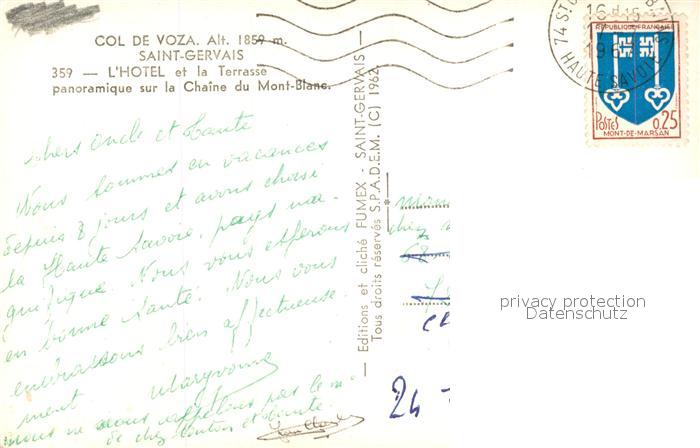 COL DE VOZA. Alt. 1859 m.
SAINT-GERVAIS
359 — L'HOTEL et la Terrasse
panoramique sur la Chaîne du Mont-Blanc.
chers Oncle et Tante
Nous sommes en vacances
depuis 8 jours et avons choisi
la Haute Savoie, pays ma-
gnifique. Nous vous espérons
en bonne santé. Nous vous
embrassons bien affectueuse
ment Maryvonne
nous ne nous rappelons pas le n°
de chez tonton et tante.
— Editions et cliché FUMEX - SAINT-GERVAIS —
Tous droits réservés S.P.A.D.E.M. (C) 1962
chez
68
24 -
74 ST
BAINS
16 H 15
196
HAUTE SAVOIE
REPUBLIQUE FRANÇAISE
POSTES 0,25
MONT-DE-MARSAN
privacy protection
Datenschutz